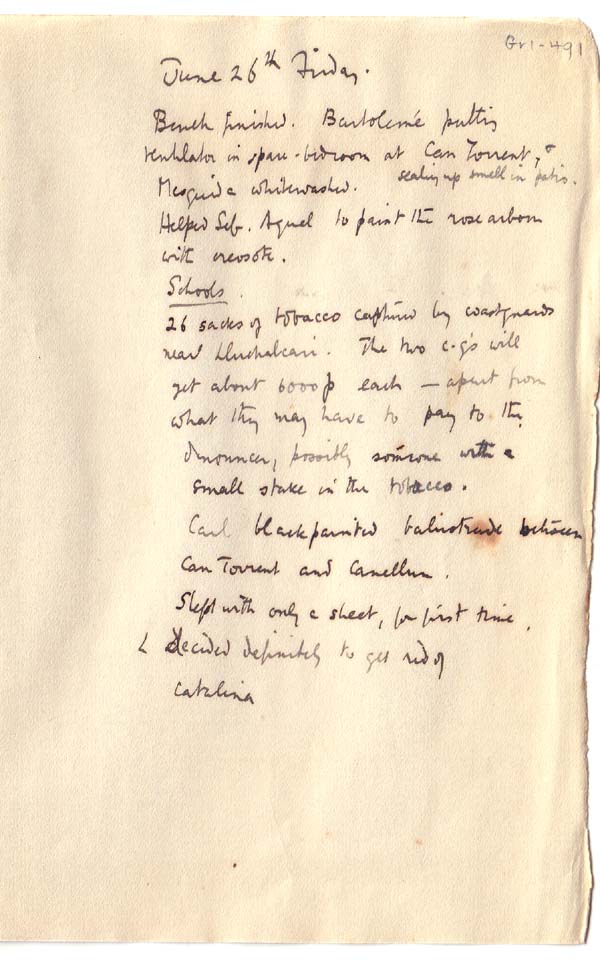 Gr1-491
June 26th Friday.
Bench finished. Bartolomé putting
ventilator in spare-bedroom at Can Torrent, &
sealing up smell in patio.
Mesquida whitewashed.
Helped Seb. Aguel to paint the rose arbour
with creosote.
Schools.
26 sacks of tobacco captured by coastguards
near Lluchalcari. The two c-g's will
get about 6000 p each — apart from
what they may have to pay to the
denouncer, possibly someone with a
small stake in the tobacco.
Carl blackpainted balustrade between
Can Torrent and Canellun.
Slept with only a sheet, for first time.
L decided definitely to get rid of
Catalina